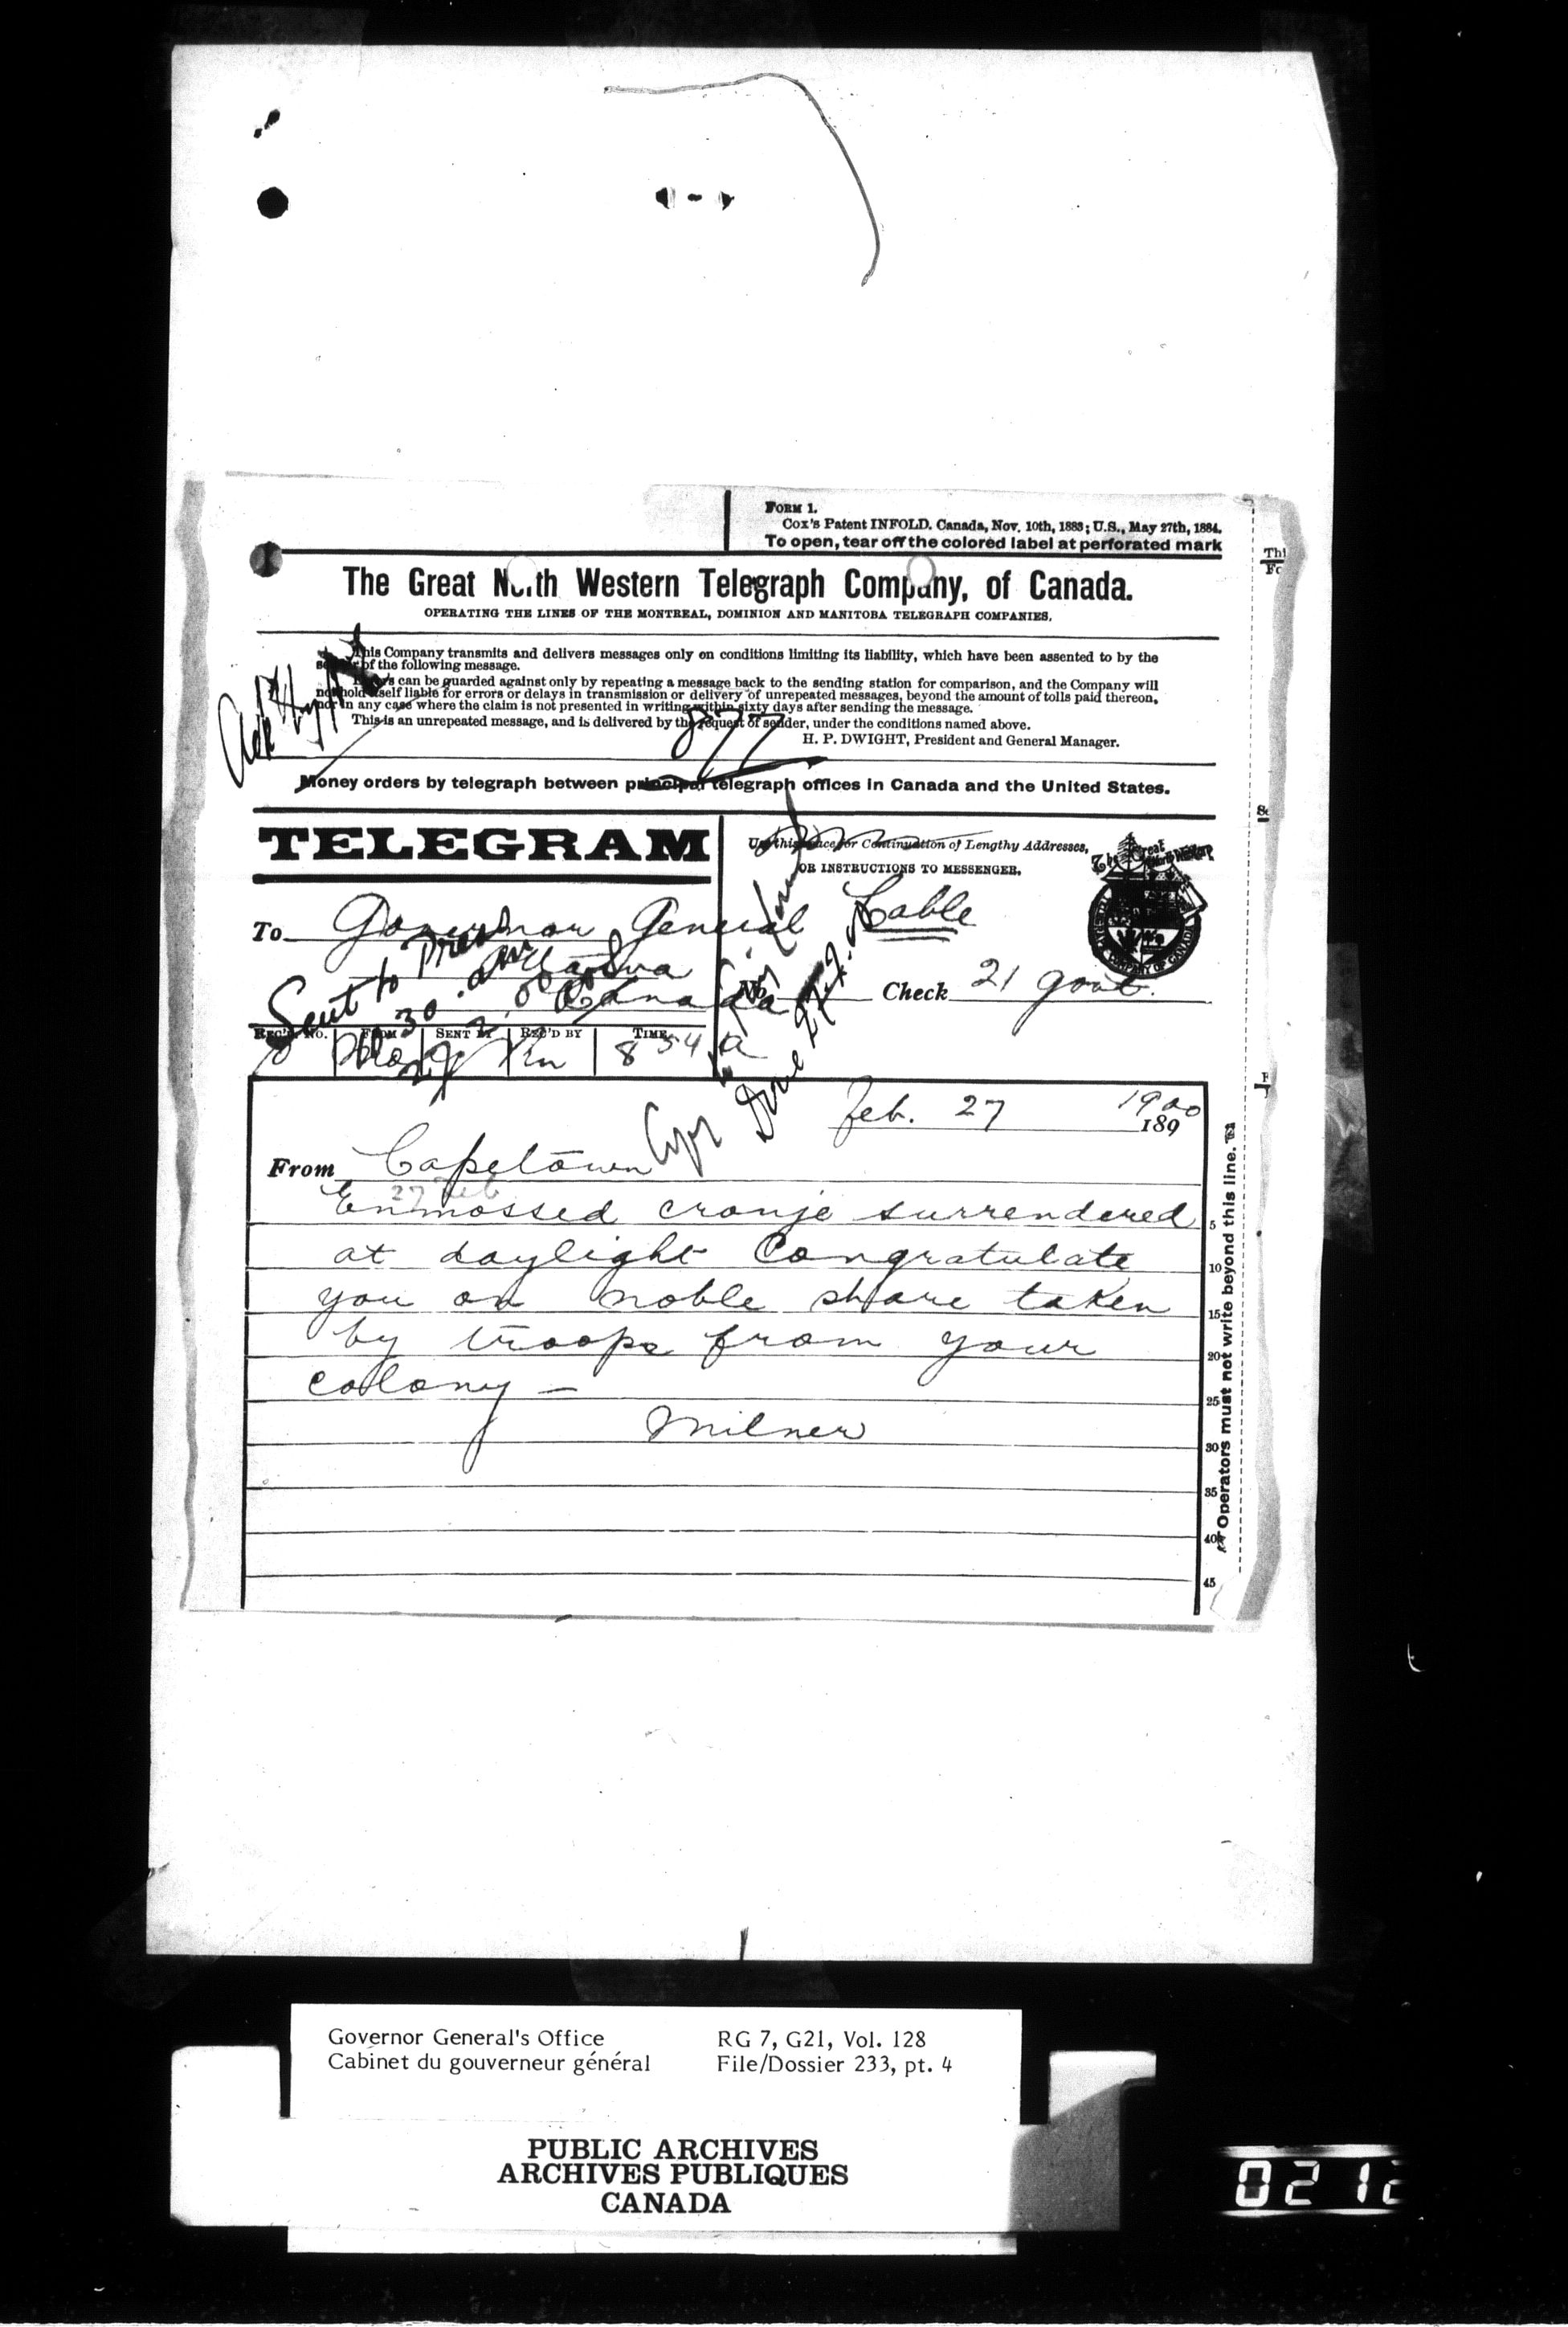 FORM 1.
Cox's Patent INFOLD. Canada, Nov. 10th, 1883; U.S., May 27th, 1884.
To open, tear off the colored label at perforated mark
The Great North Western Telegraph Company, of Canada.
OPERATING THE LINES OF THE MONTREAL, DOMINION AND MANITOBA TELEGRAPH COMPANIES.
This Company transmits and delivers messages only on conditions limiting its liability, which have been assented to by the
sender of the following message.
Errors can be guarded against only by repeating a message back to the sending station for comparison, and the Company will
not hold itself liable for errors or delays in transmission or delivery of unrepeated messages, beyond the amount of tolls paid thereon,
nor in any case where the claim is not presented in writing within sixty days after sending the message.
This is an unrepeated message, and is delivered by the request of sender, under the conditions named above.
H. P. DWIGHT, President and General Manager.
877
Money orders by telegraph between principal telegraph offices in Canada and the United States.
TELEGRAM
Use this space for Continuation of Lengthy Addresses,
OR INSTRUCTIONS TO MESSENGER.
To Governor General
Cable
Ottawa
Canada
Sent to Press
No. Check 21 govt.
REC'D NO. FROM SENT BY REC'D BY TIME
8 54 a
Feb. 27 1900
189
From Capetown
27 Feb
Enmossed cronje surrendered
at daylight Congratulate
you on noble share taken
by troops from your
colony —
Milner
5
10
15
20
25
30
35
40
45
Operators must not write beyond this line.
Governor General's Office RG 7, G21, Vol. 128
Cabinet du gouverneur général File/Dossier 233, pt. 4
PUBLIC ARCHIVES
ARCHIVES PUBLIQUES
CANADA
0212